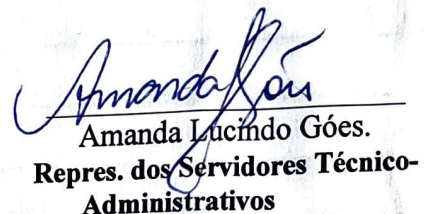 Amanda Góis
Amanda Lucindo Góes.
Repres. dos Servidores Técnico-
Administrativos